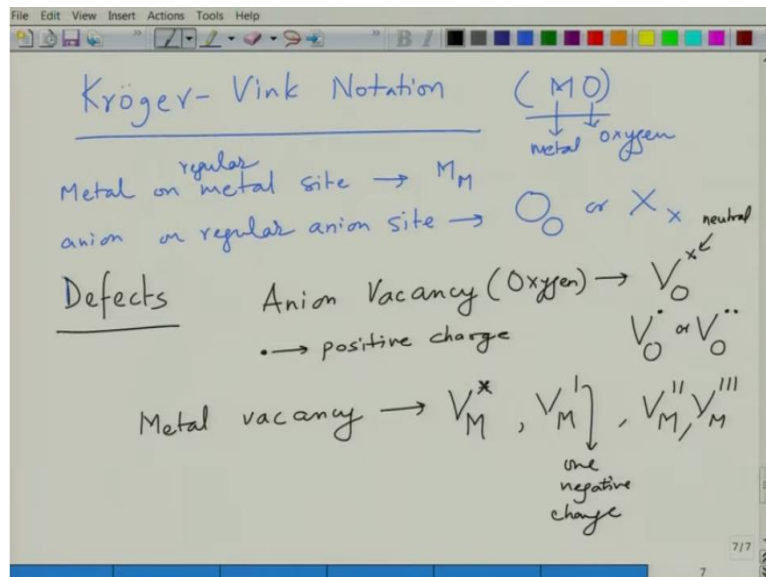 File Edit View Insert Actions Tools Help
B I
Kröger-Vink Notation (MO)
metal oxygen
regular
Metal on metal site → M_M
anion on regular anion site → O_O or X_x
neutral
Defects Anion Vacancy (Oxygen) → V_O^x
• → positive charge V_O^• or V_O^••
Metal vacancy → V_M^x, V_M^', V_M^'', V_M^'''
one
negative
charge
7/7
7